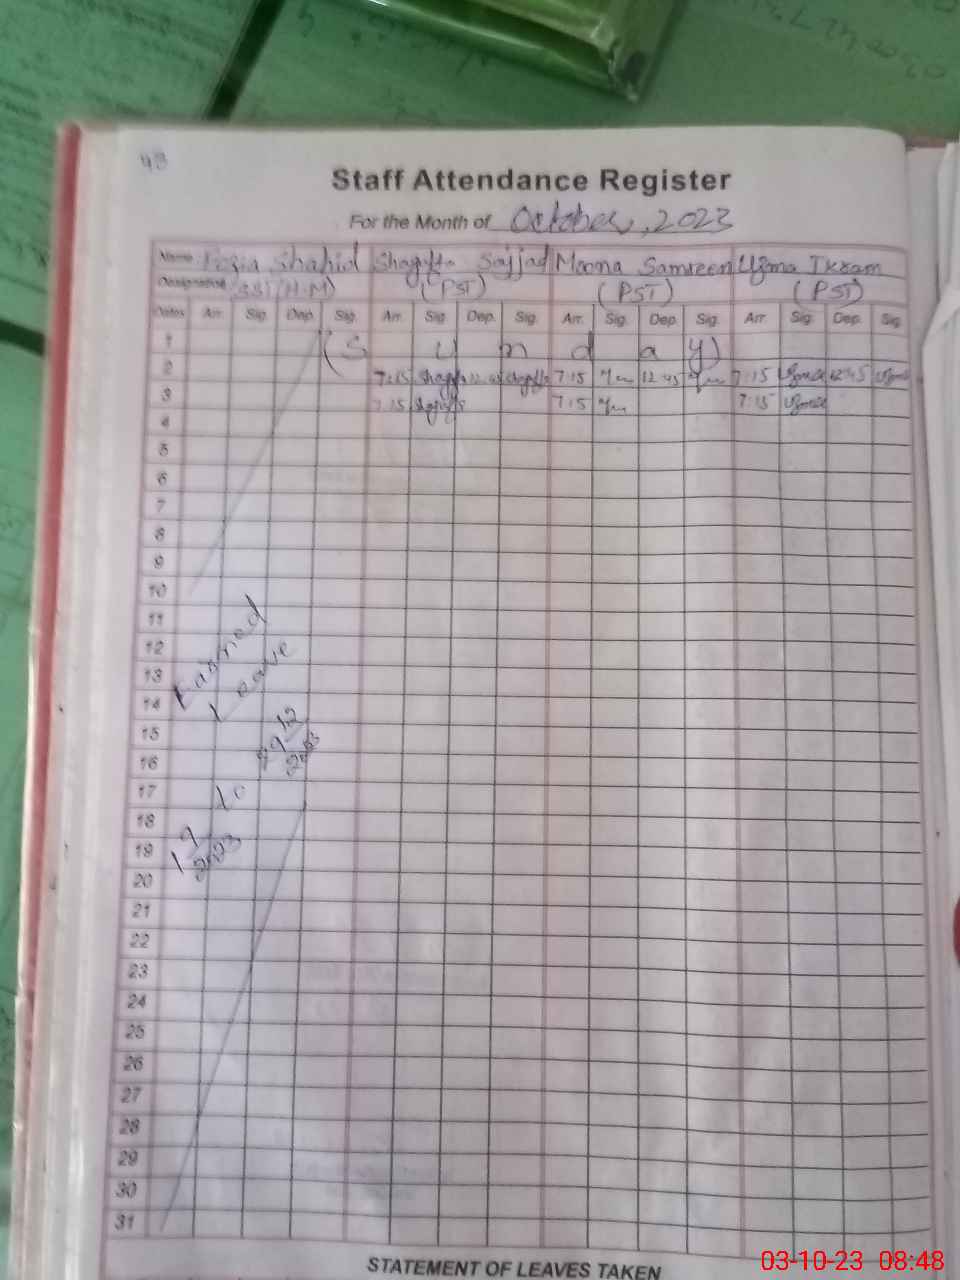 43
Staff Attendance Register
For the Month of October, 2023
Name Fozia Shahid Shagufta Sajjad Moona Samreen Uzma Ikram
Designation SST (H.M) (PST) (PST) (PST)
Dates Arr. Sig. Dep. Sig. Arr. Sig. Dep. Sig. Arr. Sig. Dep. Sig. Arr. Sig. Dep. Sig.
1 (S u n d a y)
2 7:15 Shagufta 12:45 Shagufta 7:15 12:45 7:15 Uzma 12:45 Uzma
3 7:15 Shagufta 7:15 7:15 Uzma
4
5
6
7
8
9
10
11
12
13
14
15
16
17
18
19
20
21
22
23
24
25
26
27
28
29
30
31
Earned
Leave
1 9 2023 to 12 2023
STATEMENT OF LEAVES TAKEN
03-10-23 08:48